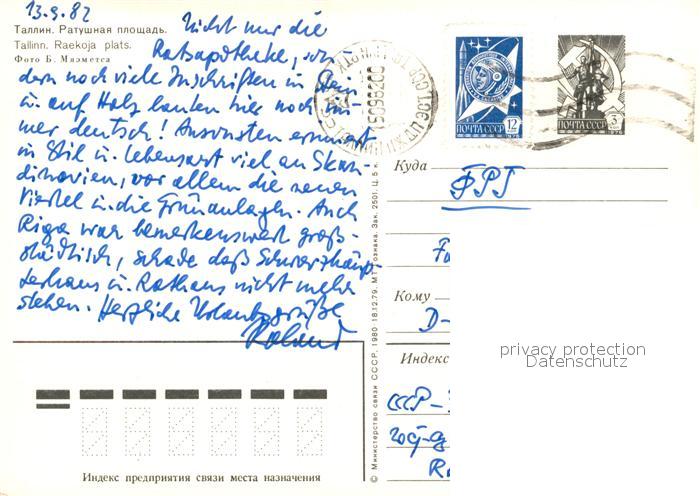 13.9.82
Таллин. Ратушная площадь.
Tallinn. Raekoja plats.
Фото Б. Мяэметса
Nicht nur die
Ratsapotheke, son-
dern noch viele Inschriften in Stein
u. auf Holz lauten hier noch im-
mer deutsch! Ansonsten erinnert
in Stil u. Lebensart viel an Skan-
dinavien, vor allem die neuen
Viertel u. die Grünanlagen. Auch
Riga war bemerkenswert groß-
städtisch, schade daß Schwarzhäup-
terhaus u. Rathaus nicht mehr
stehen. Herzliche Urlaubsgrüße
Roland
ПОЧТА СССР 12
ПОЧТА СССР 3
Куда
ФРГ
Кому
D-
Индекс
СССР-
© Министерство связи СССР, 1980 18.12.79. МТ Гознака. Зак. 2501. Ц. 5 к.
Индекс предприятия связи места назначения
privacy protection
Datenschutz